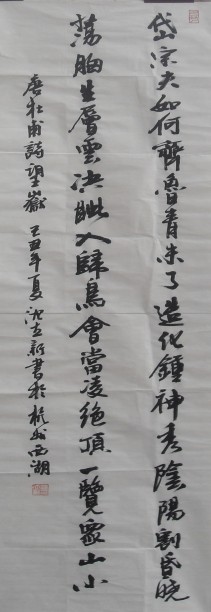 岱宗夫如何齊魯青未了造化鍾神秀陰陽割昏曉
蕩胸生層雲決眦入歸鳥會當凌絕頂一覽眾山小
唐杜甫詩望嶽 己丑年夏沈立新書於杭州西湖